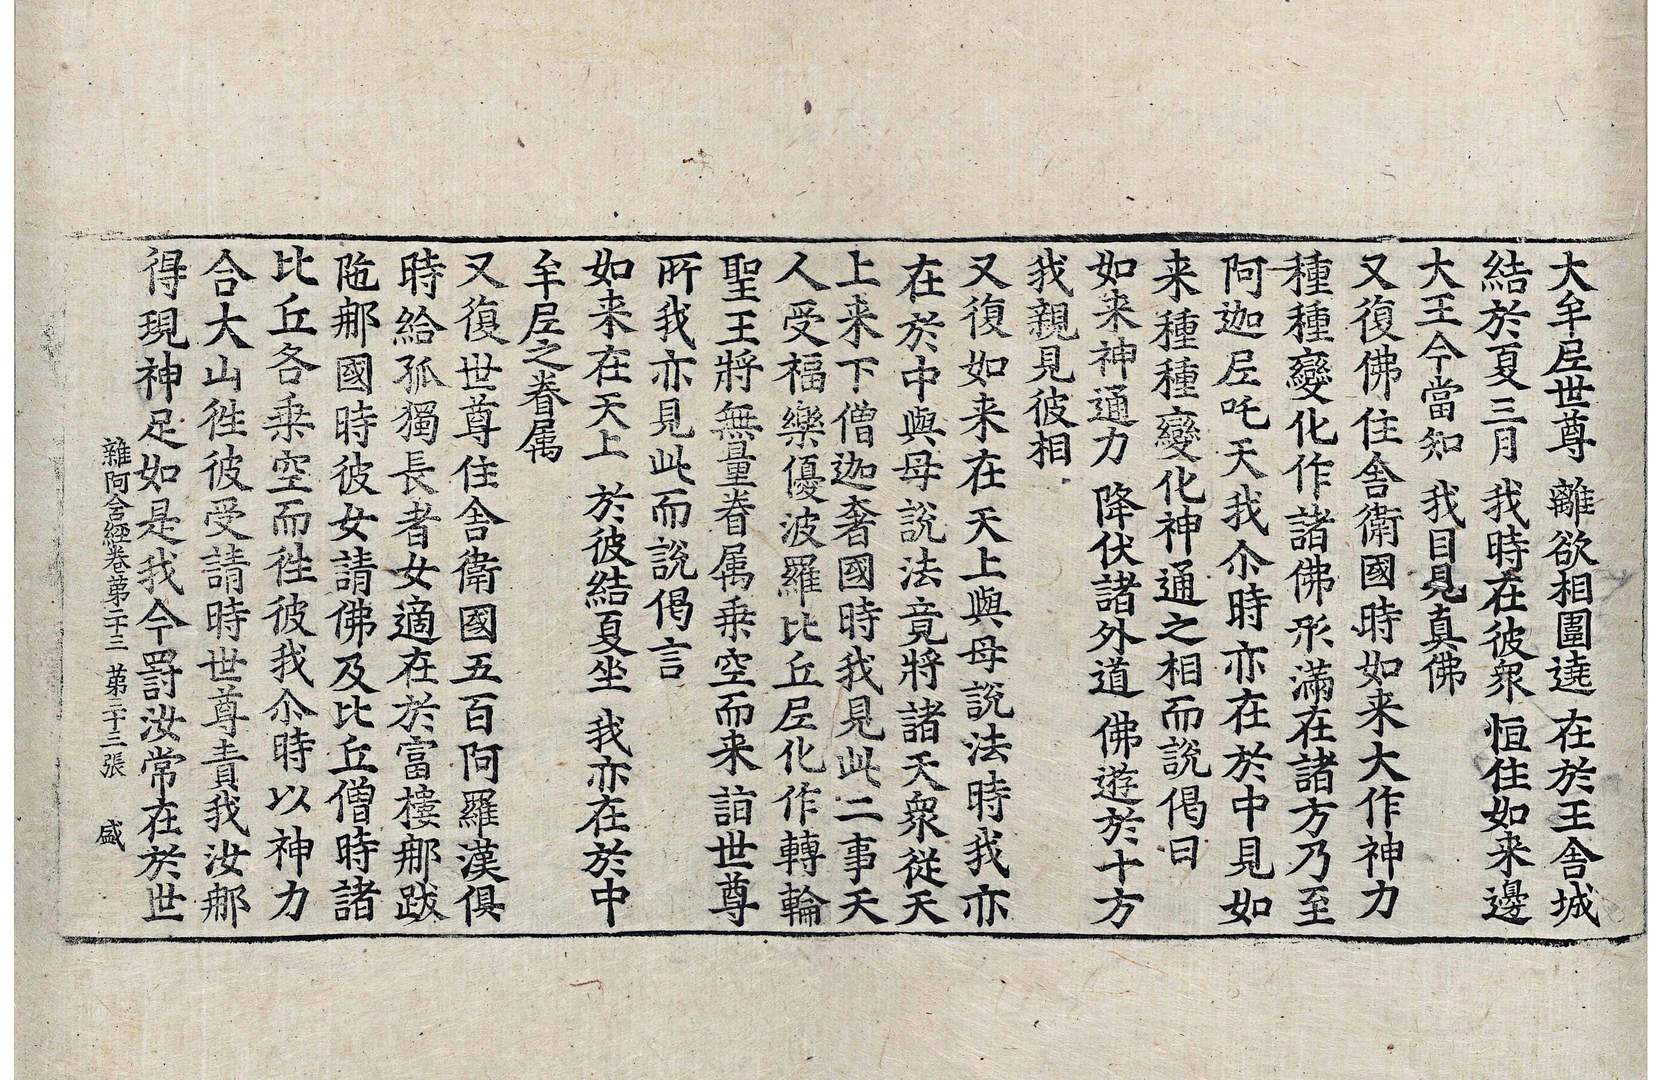 大牟𡰱世尊 離欲相圍遶 在於王舍城
結於夏三月 我時在彼衆 恒住如来邊
大王今當知 我目見真佛
又復佛住舍衛國時如来大作神力
種種變化作諸佛形滿在諸方乃至
阿迦𡰱吒天我尒時亦在於中見如
来種種變化神通之相而說偈曰
如来神通力 降伏諸外道 佛遊於十方
我親見彼相
又復如来在天上與母說法時我亦
在於中與母說法竟將諸天衆從天
上来下僧迦奢國時我見此二事天
人受福樂優波羅比丘𡰱化作轉輪
聖王將無量眷属乗空而来詣世尊
所我亦見此而說偈言
如来在天上 於彼結夏坐 我亦在於中
牟𡰱之眷属
又復世尊住舍衛國五百阿羅漢俱
時給孤獨長者女適在於富樓𨚗跋
陁𨚗國時彼女請佛及比丘僧時諸
比丘各乗空而徃彼我尒時以神力
合大山徃彼受請時世尊責我汝𨚗
得現神足如是我今罸汝常在於世
雜阿含經卷第二十三 第二十三張 盛